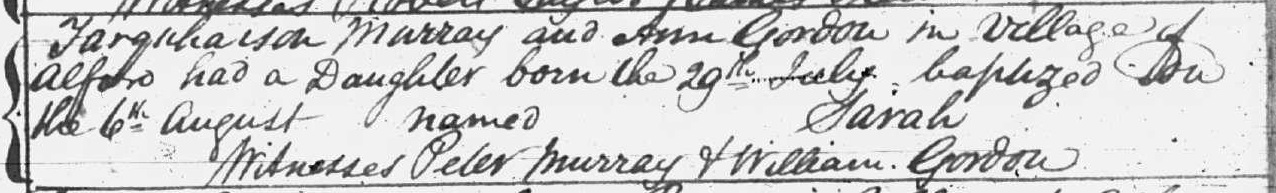 Farquharson Murray and Ann Gordon in Village of
Alford had a Daughter born the 29th July baptized on
the 6th August named Sarah
Witnesses Peter Murray & William Gordon